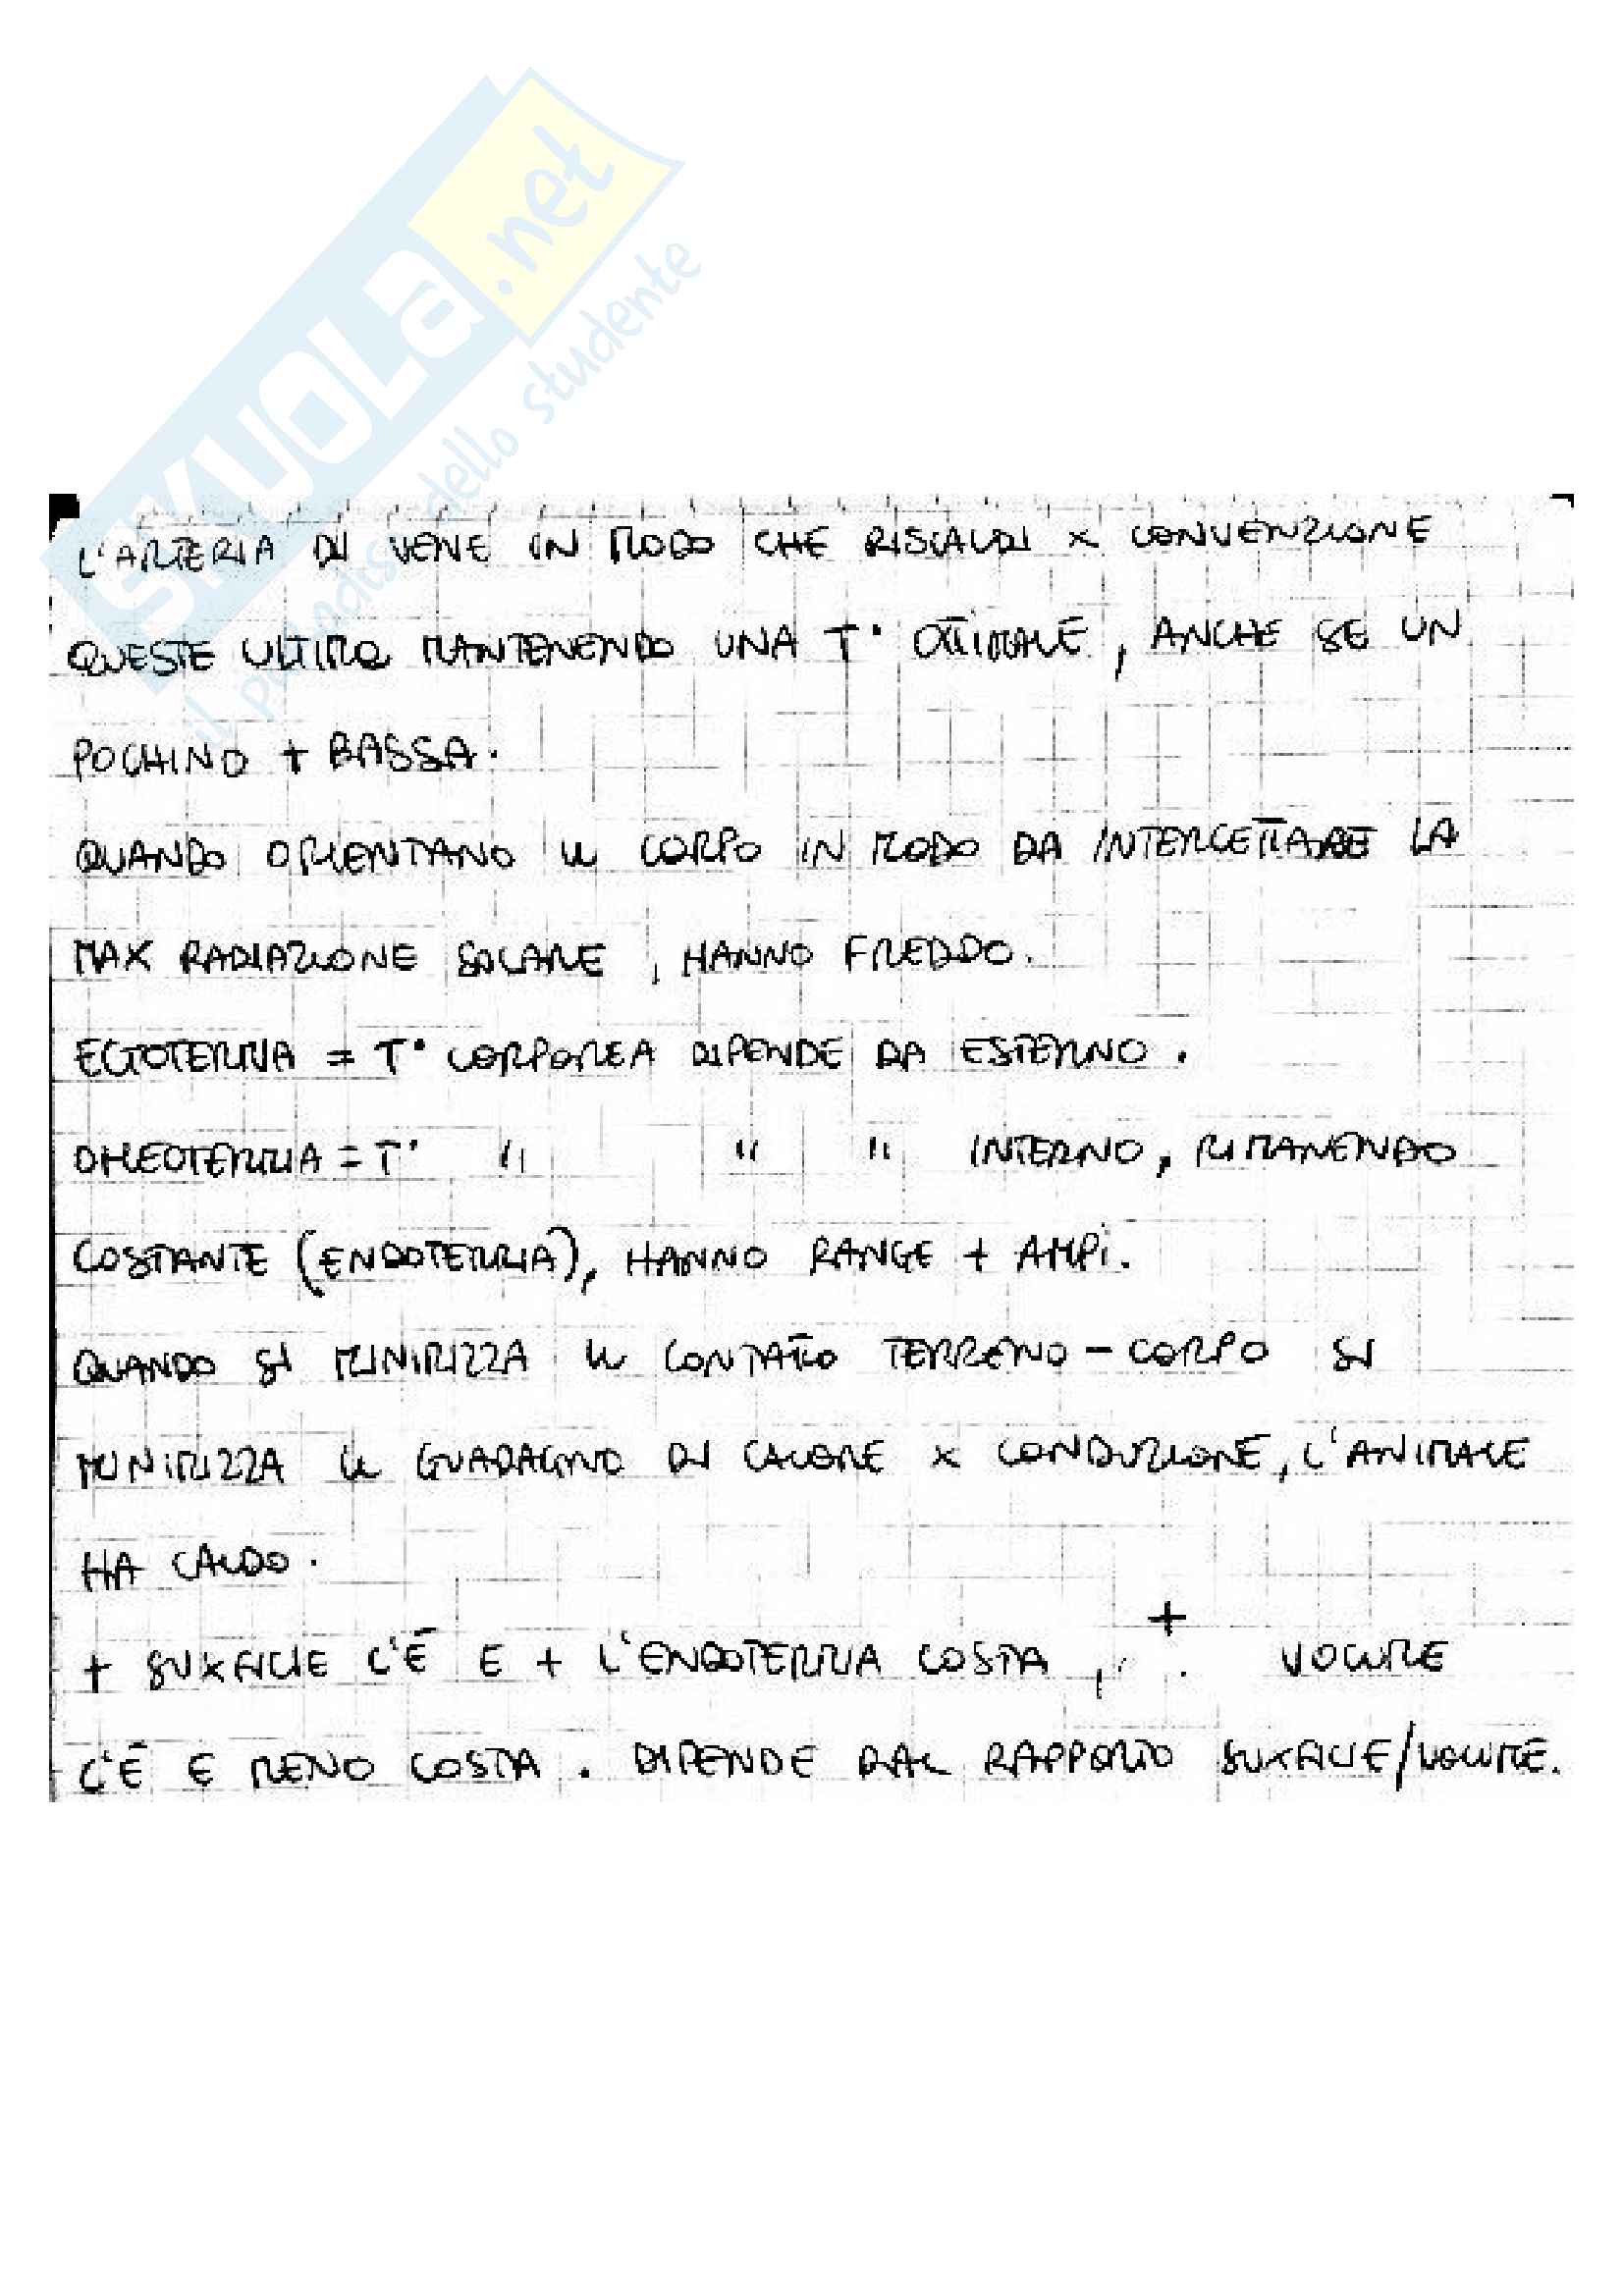 SKUOLa.net
il paradiso dello studente
L'ARTERIA DI VENE IN MODO CHE RISCALDI X CONVENZIONE
QUESTE ULTIME MANTENENDO UNA T° OTTIMALE, ANCHE SE UN
POCHINO + BASSA.
QUANDO ORIENTANO IL CORPO IN MODO DA INTERCETTARE LA
MAX RADIAZIONE SOLARE, HANNO FREDDO.
ECTOTERMIA = T° CORPOREA DIPENDE DA ESTERNO.
OMEOTERMIA = T° " " " INTERNO, RIMANENDO
COSTANTE (ENDOTERMIA), HANNO RANGE + AMPI.
QUANDO SI MINIMIZZA IL CONTATTO TERRENO - CORPO SI
MINIMIZZA IL GUADAGNO DI CALORE X CONDUZIONE, L'ANIMALE
HA CALDO.
+ SUXFICIE C'È E + L'ENDOTERMIA COSTA, + VOLUME
C'È E MENO COSTA. DIPENDE DAL RAPPORTO SUXFICIE/VOLUME.